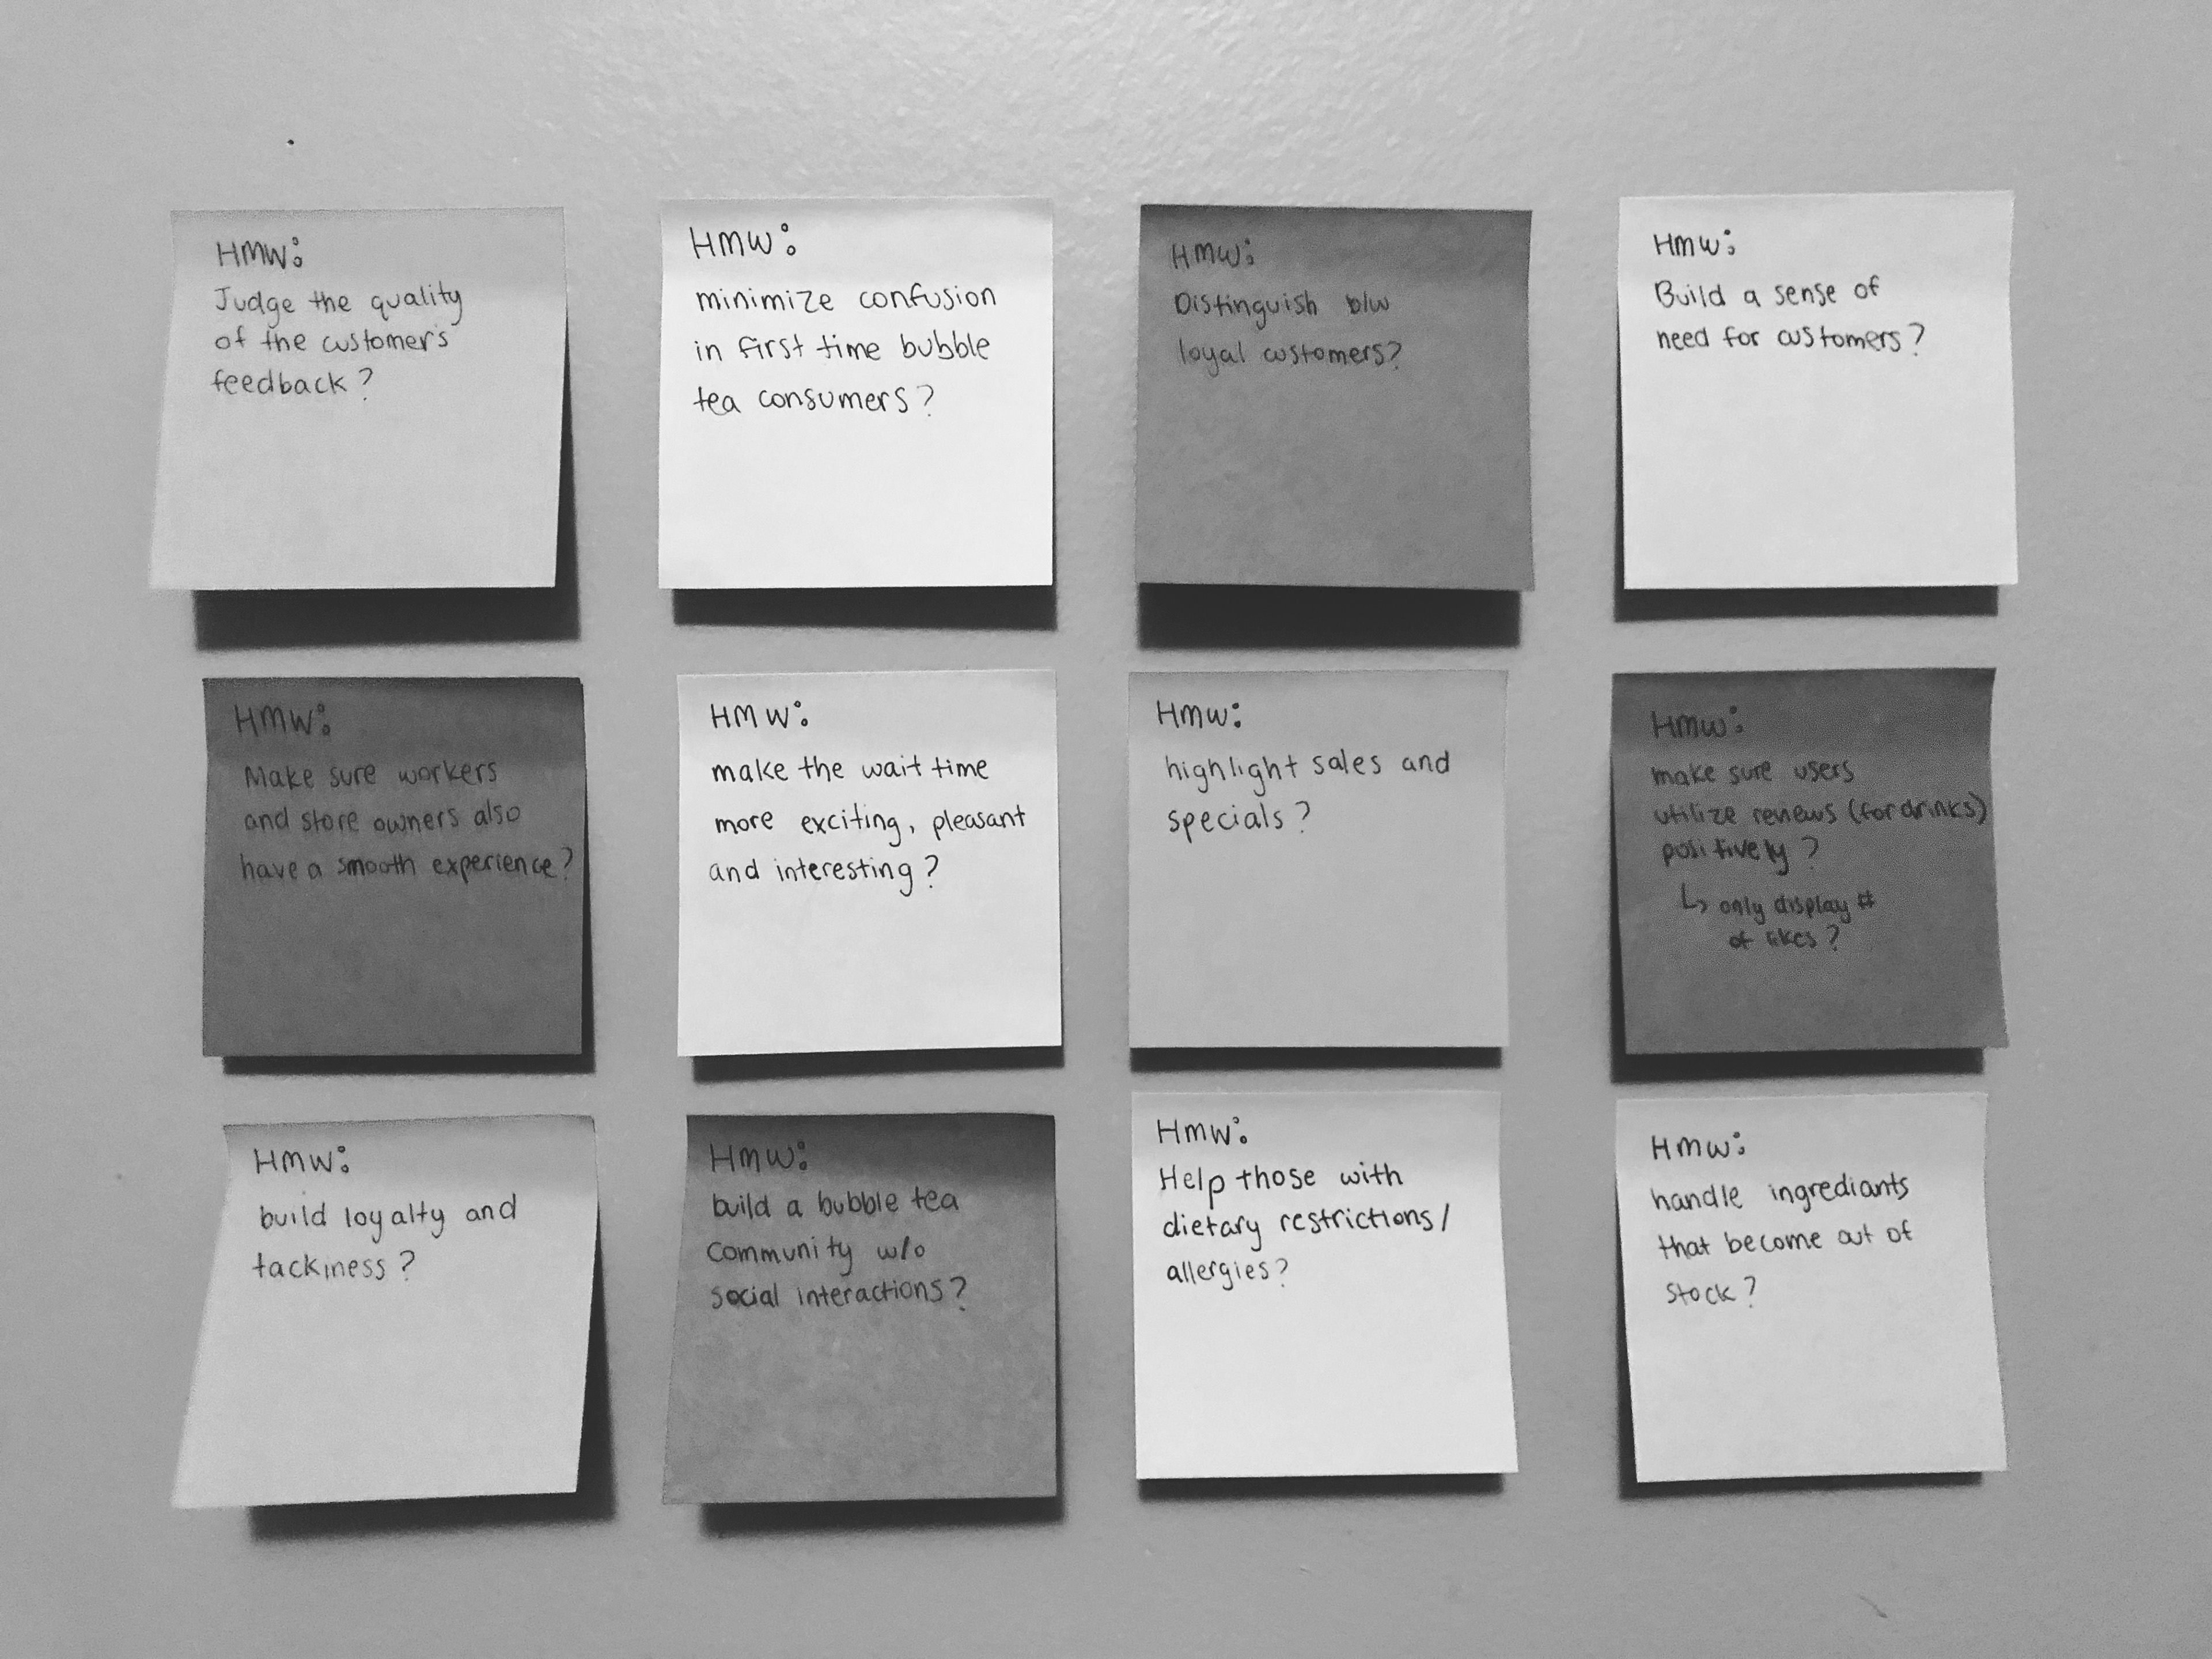 HMW:
Judge the quality
of the customer's
feedback?
HMW:
minimize confusion
in first time bubble
tea consumers?
HMW:
Distinguish b/w
loyal customers?
HMW:
Build a sense of
need for customers?
HMW:
Make sure workers
and store owners also
have a smooth experience?
HMW:
make the wait time
more exciting, pleasant
and interesting?
HMW:
highlight sales and
specials?
HMW:
make sure users
utilize reviews (for drinks)
positively?
↳ only display #
of likes?
HMW:
build loyalty and
tackiness?
HMW:
build a bubble tea
community w/o
social interactions?
HMW:
Help those with
dietary restrictions/
allergies?
HMW:
handle ingrediants
that become out of
stock?